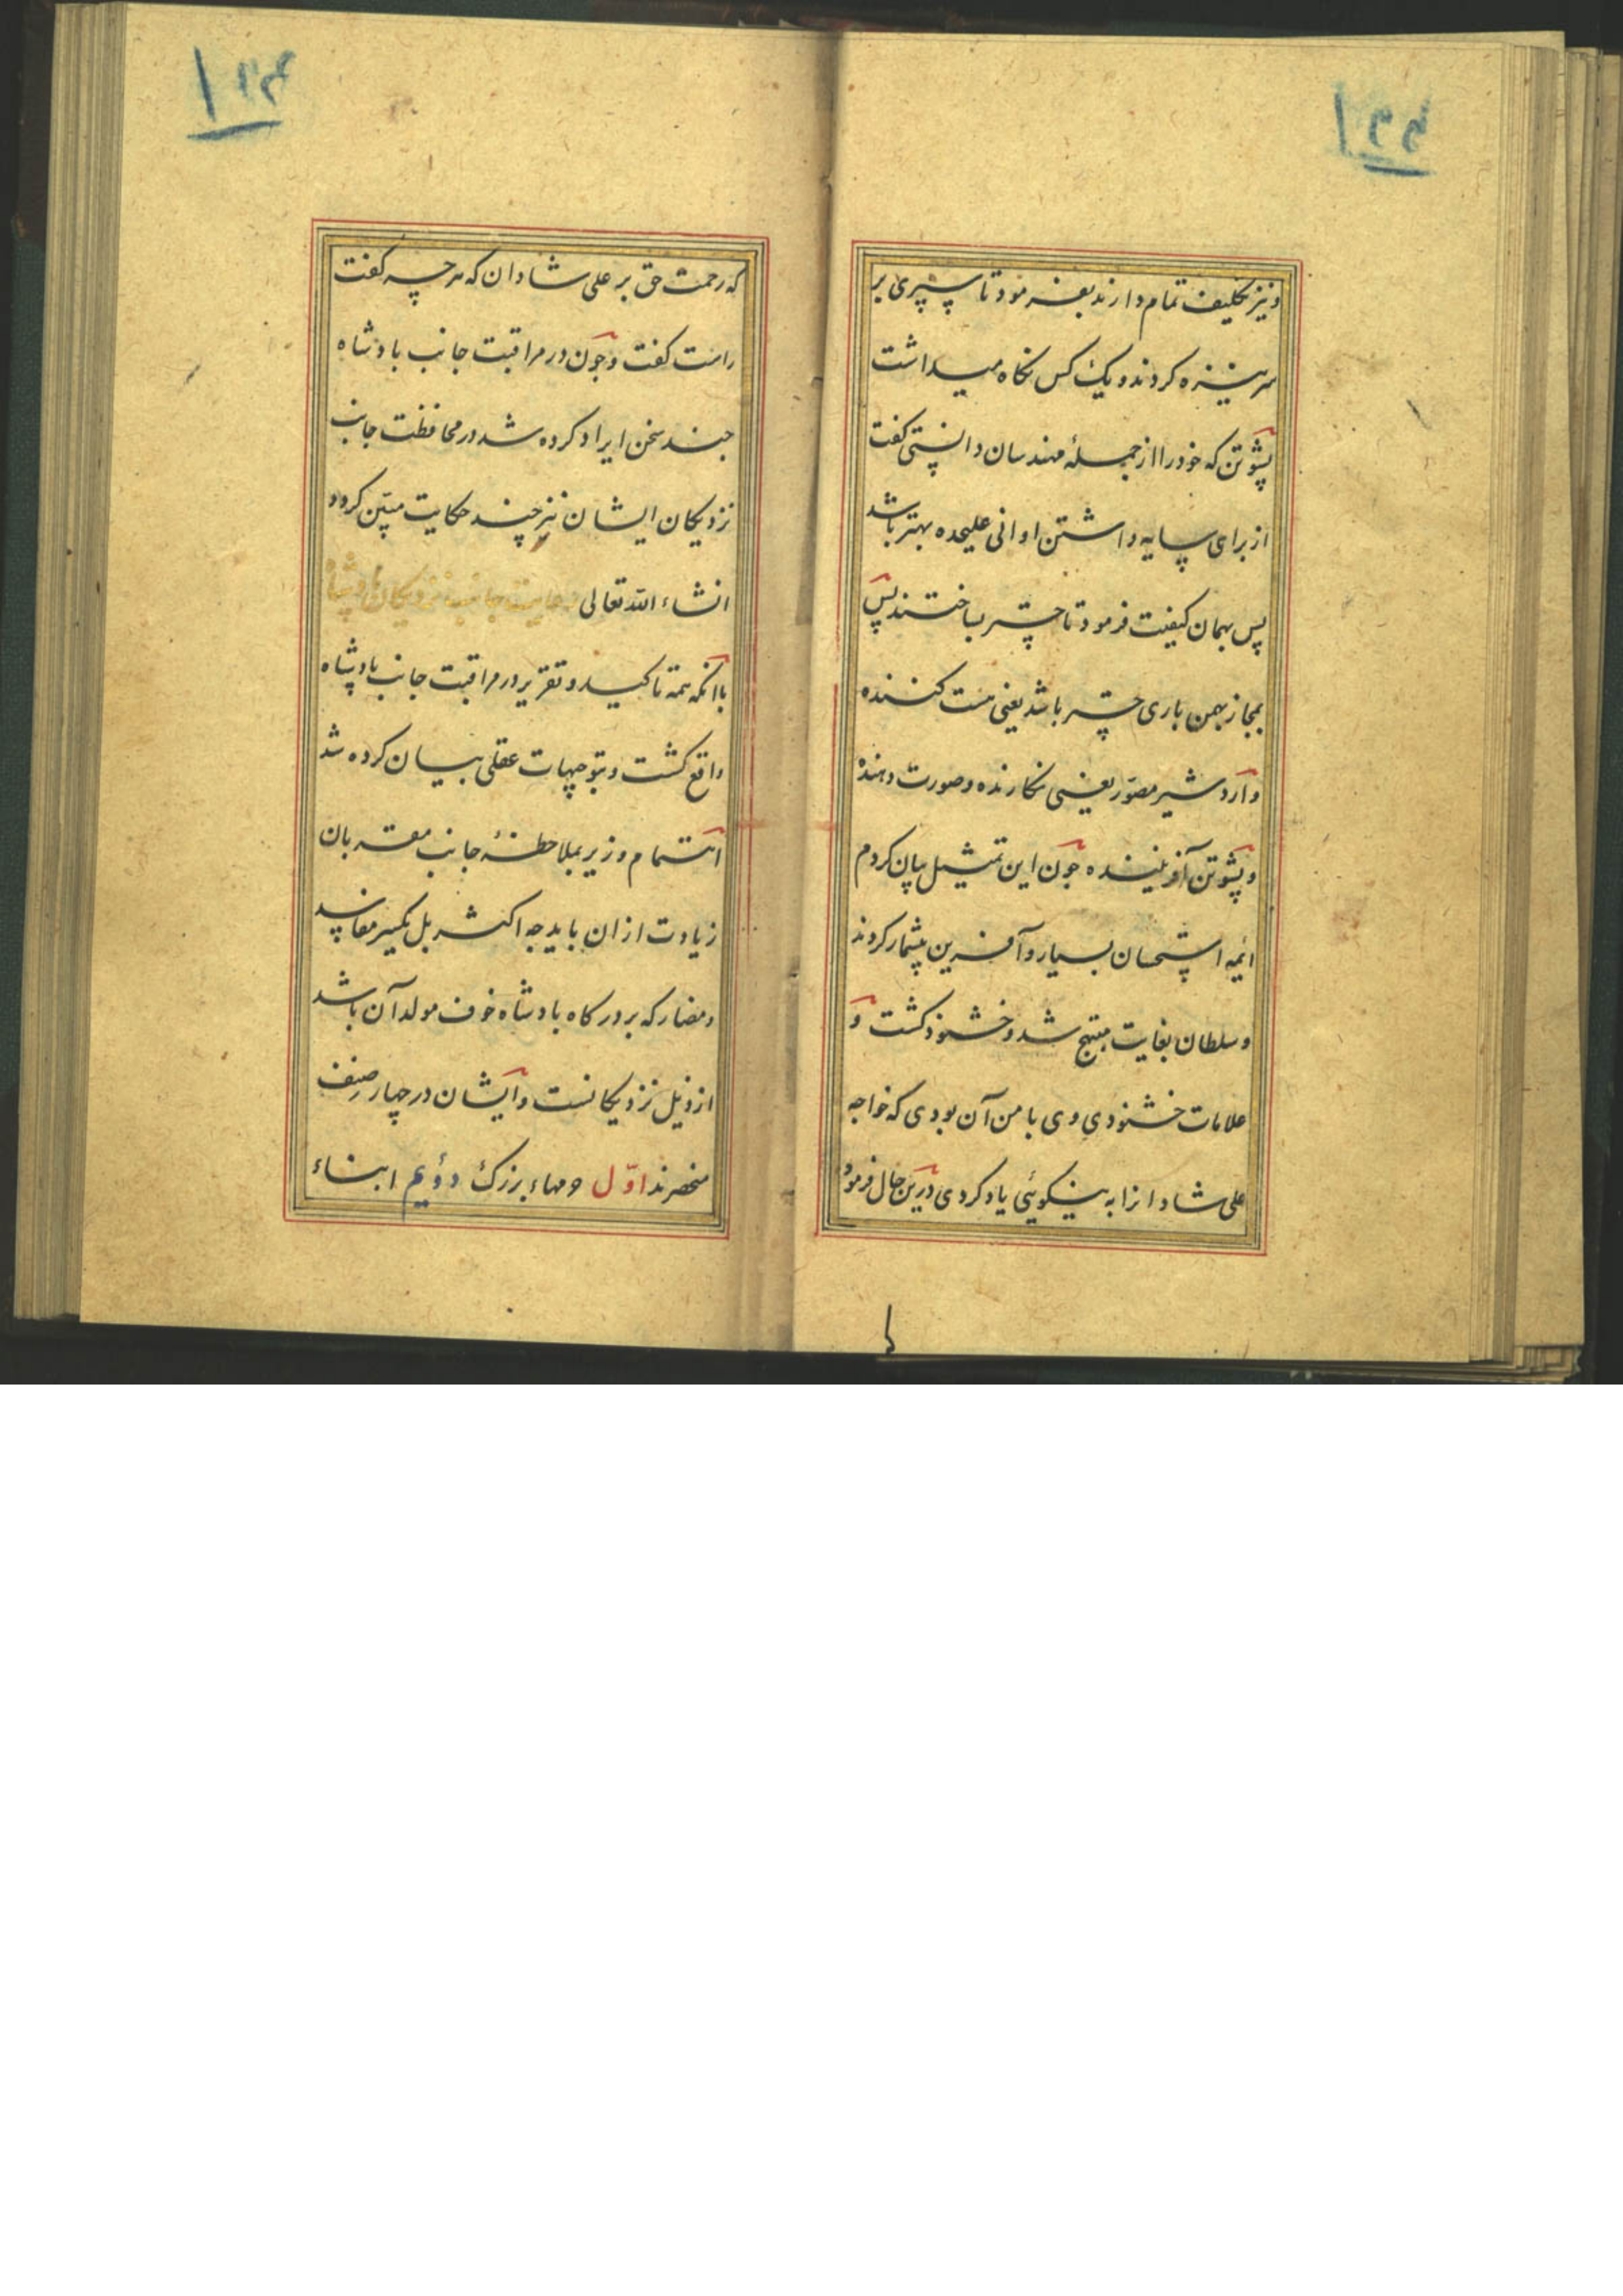 ونیز تکلیف تمام دارند بفرمود تا سپری بر
سر نیزه کردند و یک کس نگاه میداشت
پشوتن که خود را از جملهٔ مهندسان دانستی گفت
از برای سایه داشتن اوانی علیحده بهتر باشد
پس بهمان کیفیت فرمود تا چتر بساختند پس
بمجاز بهمن باری چتر باشد یعنی هست کننده
و اردشیر مصوّر یعنی نگارنده و صورت دهنده
و پشوتن آفریننده چون این تمثیل بیان کردم
ائمه استحسان بسیار و آفرین بیشمار کردند
و سلطان بغایت مبتهج شد و خشنود کشت و
علامات خشنودی وی با من آن بودی که خواجه
علی شادانرا به نیکوئی یاد کردی درین حال فرمود
که رحمت حق بر علی شادان که هر چه گفت
راست گفت و چون در مراقبت جانب بادشاه
چند سخن ایراد کرده شد در محافظت جانب
نزدیکان ایشان نیز چند حکایت مبیّن کردد
انشاء الله تعالی رعایت جانب نزدیکان پادشاه
با آنکه همه تاکید و تقریر در مراقبت جانب پادشاه
واقع کشت و بتوجیهات عقلی بیان کرده شد
اهتمام وزیر بملاحظهٔ جانب مقربان
زیادت از ان باید چه اکثر بل یکسر مفاسد
و مضار که بر درکاه بادشاه خوف مولد آن باشد
از ذیل نزدیکانست و ایشان در چهار صنف
منحصرند اوّل ومهاء بزرک دویم ابناء